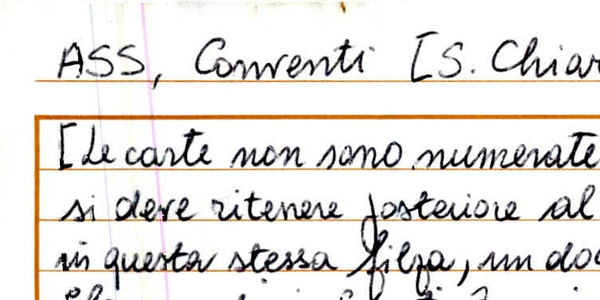 ASS, Conventi [S. Chiar
[Le carte non sono numerate
si deve ritenere posteriore al
in questa stessa filza, un doc